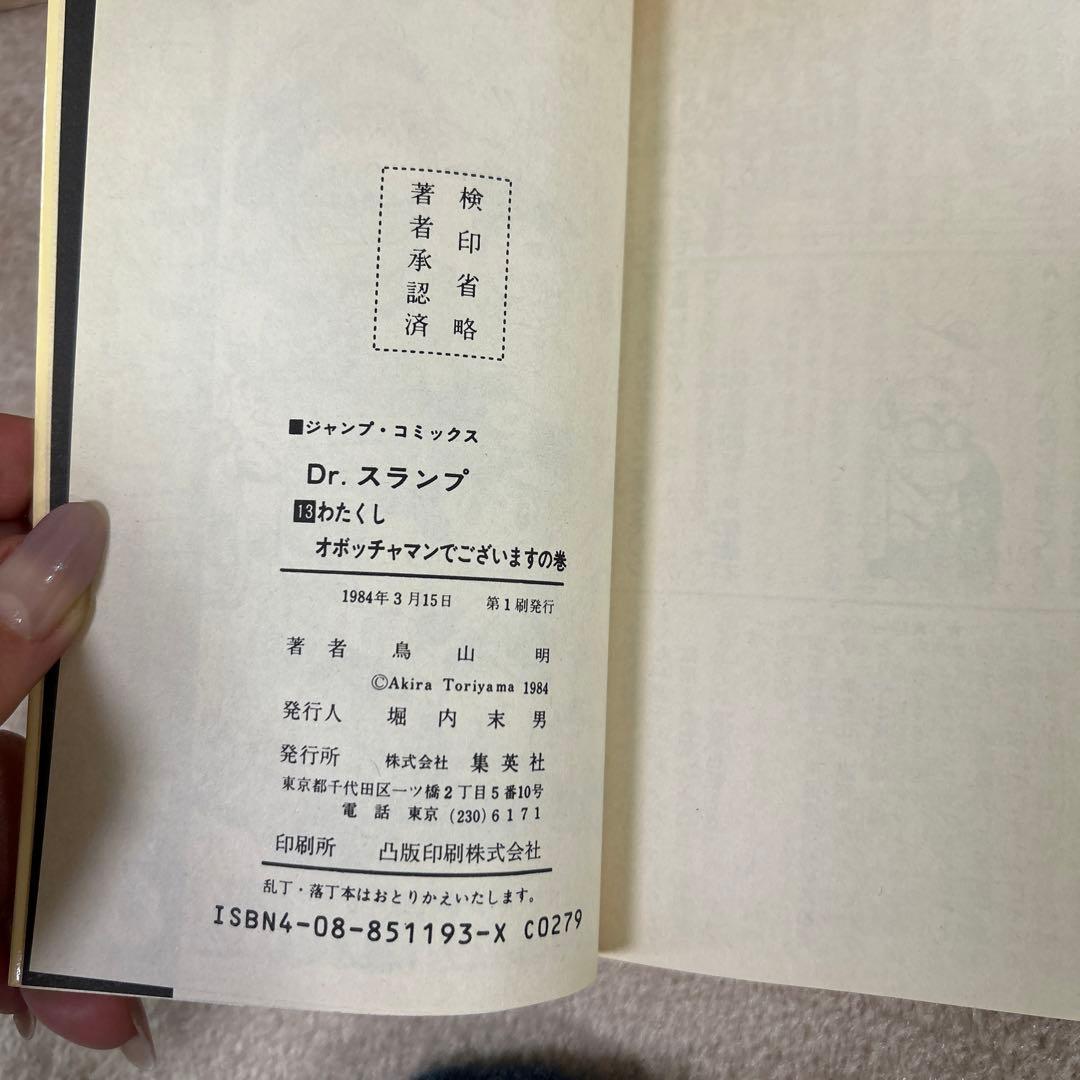 検印省略
著者承認済
■ジャンプ・コミックス
Dr.スランプ
13わたくし
オボッチャマンでございますの巻
1984年3月15日 第1刷発行
著者 鳥山明
©Akira Toriyama 1984
発行人 堀内末男
発行所 株式会社 集英社
東京都千代田区一ツ橋2丁目5番10号
電話 東京 (230)6171
印刷所 凸版印刷株式会社
乱丁・落丁本はおとりかえいたします。
ISBN4-08-851193-X C0279